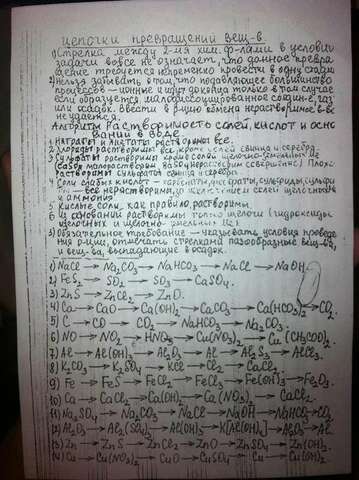 цепочки превращений вещ-в
1) Стрелка между 2-мя хим. ф-лами в условии
задачи вовсе не означает, что данное превра
щение требуется непременно провести в одну стадию
2) Нельзя забывать о том, что подавляющее большинство
процессов – ионные и идут до конца только в том случае
если образуется малодиссоциированное соедин-е, газ
или осадок. Ввести в р-цию обмена нерастворимое в-во
не удается.
Алгоритм Растворимость солей, кислот и осно
ваний в воде.
1. Нитраты и ацетаты растворимы все.
2. Хлориды растворимы все, кроме свинца и серебра.
3. Сульфаты растворимы кроме солей щелочно-земельных Ме
растворимы сульфаты свинца и серебра
4 Соли слабых кислот
все нерастворимы, солей щелочных
и аммония
5. Кислые соли, как правило, растворимы.
6. Из оснований растворимы только щелочи (гидроксиды
щелочных и щелочно-земельных Ме)
3) Обязательное требование – указывать условия проведе
ния р-ции, отмечать стрелками газообразные вещ-ва,
и вещ-ва, выпадающие в осадок.
1) NaCl → Na2CO3 → NaHCO3 → NaCl → NaOH
2) FeS2 → SO2 → SO3 → CaSO4.
3) ZnS → ZnCl2 → ZnO.
4) Ca → CaO → Ca(OH)2 → CaCO3 → Ca(HCO3)2 → CO2.
5) C → CO → CO2 → NaHCO3 → Na2CO3.
6) NO → NO2 → HNO3 → Cu(NO3)2 → Cu(CH3COO)2.
7) Al → Al(OH)3 → Al2O3 → Al → Al2S3 → AlCl3.
8) K2CO3 → K2SO4 → KCl → Cl2 → CaCl2
9) Fe → FeS → FeCl2 → FeCl3 → Fe(OH)3 → Fe2O3.
10) Ca → CaCl2 → Ca(OH)2 → Ca(NO3)2 → CaCl2
11) Na2SO4 → Na2CO3 → NaCl → NaOH → NaHCO3 → CO2
12) Al2O3 → Al2(SO4)3 → Al(OH)3 → K[Al(OH)4] → Al2O3 → Al
13) Zn → ZnS → ZnCl2 → ZnO → ZnSO4 → Zn(OH)2.
14) Cu → Cu(NO3)2 → CuO → CuSO4 → Cu → Cu(OH)2